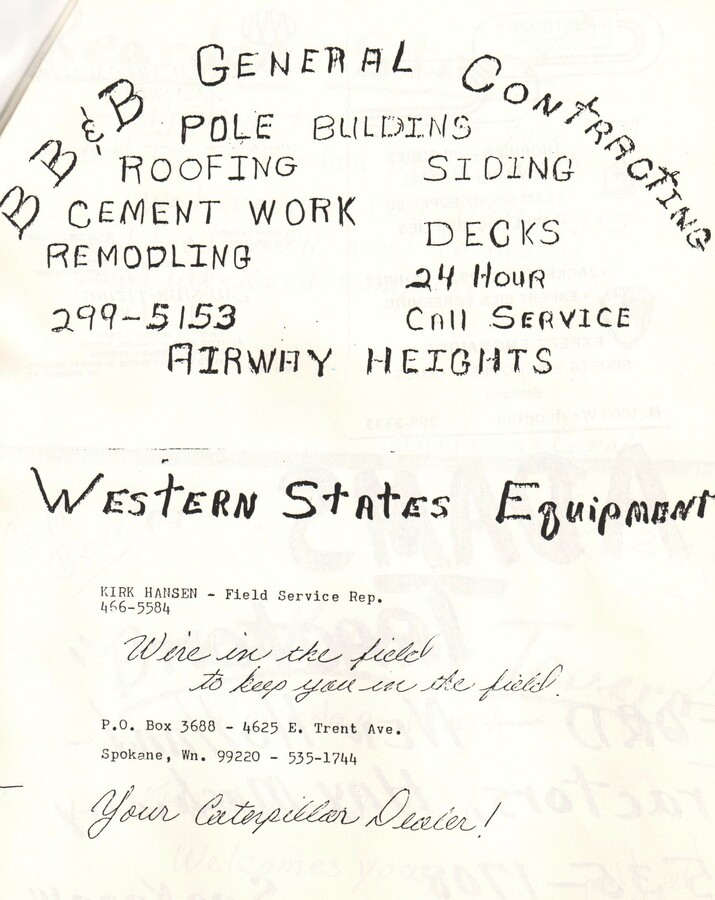 BB&B GENERAL CONTRACTING
POLE BUILDINS
ROOFING SIDING
CEMENT WORK
DECKS
REMODLING
24 HOUR
299-5153
CAll SERVICE
AIRWAY HEIGHTS
WESTERN STATES EQUIPMENT
KIRK HANSEN - Field Service Rep.
466-5584
We're in the field
to keep you in the field.
P.O. Box 3688 - 4625 E. Trent Ave.
Spokane, Wn. 99220 - 535-1744
Your Caterpillar Dealer!